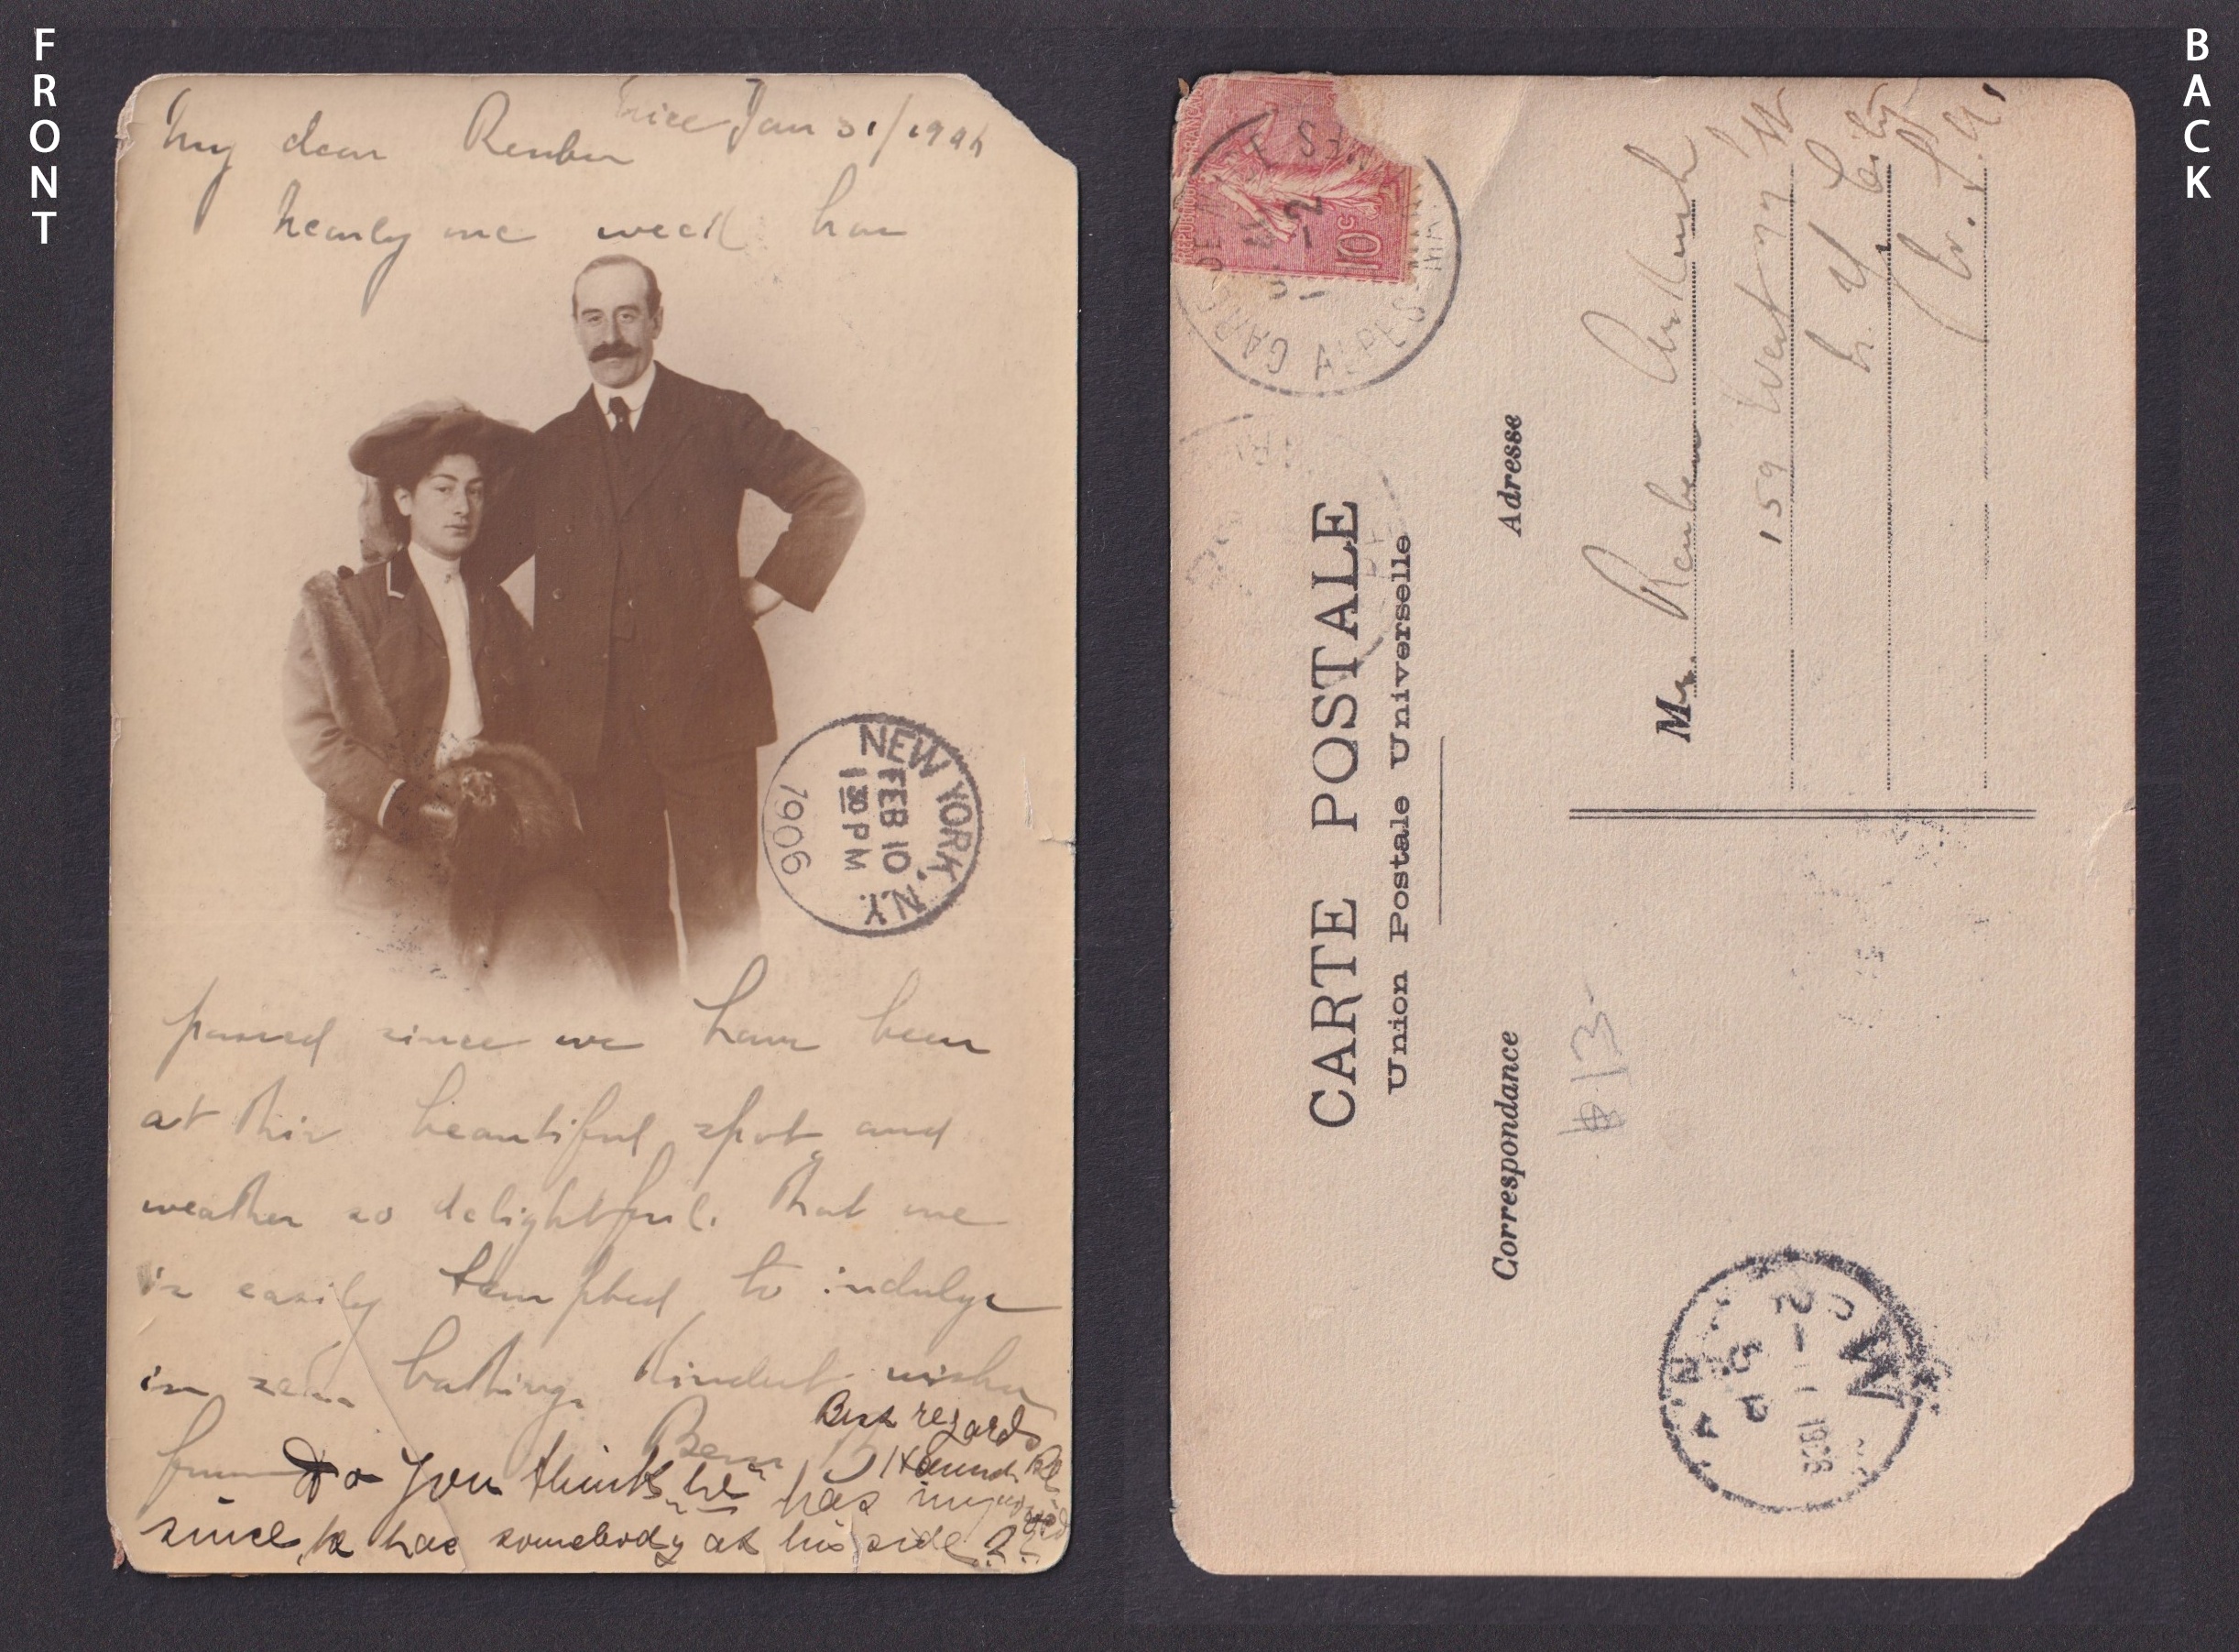 FRONT
BACK
Nice Jan 31/1906
My dear Reuben
Nearly one week has
NEW YORK, N.Y.
FEB 10
1 30 PM
1906
passed since we have been
at this beautiful spot and
weather so delightful. that one
is easily tempted to indulge
in sea bathing. Kindest wishes
from Bern
Best regards
Do you think "he" has improved
since he has somebody at his side??
REPUBLIQUE FRANÇAISE
10c
GARE DE NICE
ALPES-MARITIMES
CARTE POSTALE
Union Postale Universelle
Adresse
Mr. Reuben
159 West 77 St
N. Y. City
U.S.A.
Correspondance
#13-